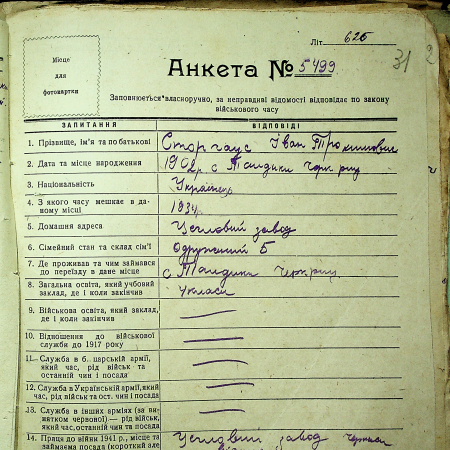 Літ. 626
31
2
Місце
для
фотокартки
Анкета № 5499
Заповнюється власноручно, за неправдиві відомості відповідає по закону
військового часу
ЗАПИТАННЯ ВІДПОВІДІ
1. Прізвище, ім'я та по батькові Сторгаус Іван
2. Дата та місце народження 1902р с
3. Національність Українець
4. З якого часу мешкає в да-
ному місці 1934
5. Домашня адреса завод
6. Сімейний стан та склад сім'ї Одружений 5
7. Де проживав та чим займався
до переїзду в дане місце с
8. Загальна освіта, який учбовий
заклад, де і коли закінчив 4 класи
9. Військова освіта, який заклад,
де і коли закінчив
10. Відношення до військової
служби до 1917 року
11. Служба в б. царській армії,
який час, рід військ та
останній чин і посада
12. Служба в Українській армії, який
час, рід військ та ост. чин і посада
13. Служба в інших арміях (за ви-
жатком червоної) — рід військ,
який час, останній чин та посада
14. Праця до війни 1941 р., місце та
займаєма посада (короткий зле завод